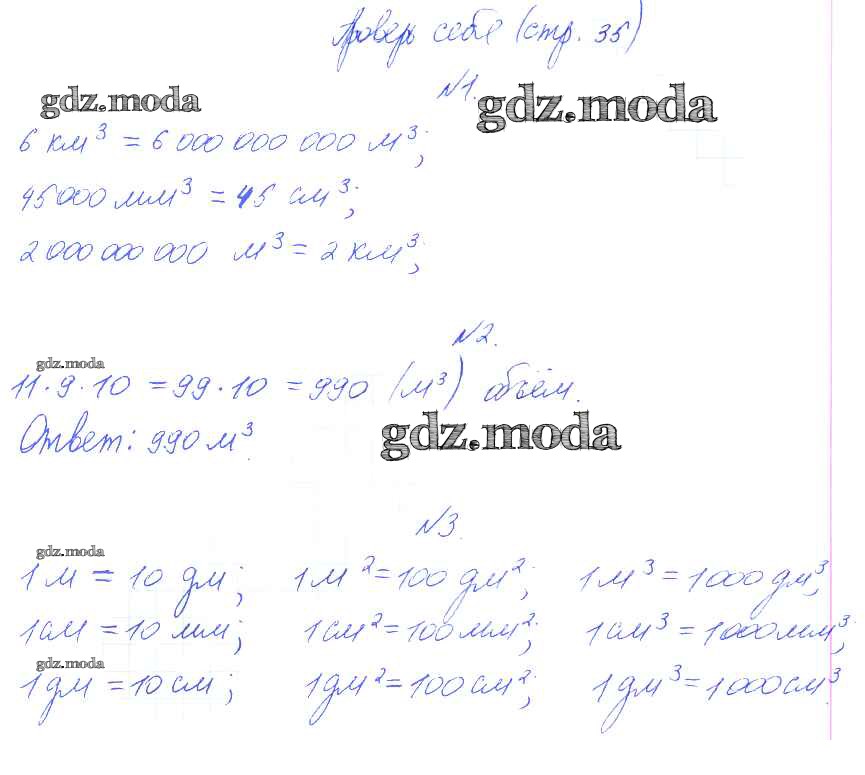 Проверь себя (стр. 35)
№1.
gdz.moda
gdz.moda
6 км³ = 6 000 000 000 м³;
45000 мм³ = 45 см³;
2 000 000 000 м³ = 2 км³;
№2.
gdz.moda
11·9·10 = 99·10 = 990 (м³) объём.
Ответ: 990 м³.
gdz.moda
№3.
gdz.moda
1 м = 10 дм; 1 м² = 100 дм²; 1 м³ = 1000 дм³;
1 см = 10 мм; 1 см² = 100 мм²; 1 см³ = 1000 мм³;
gdz.moda
1 дм = 10 см; 1 дм² = 100 см²; 1 дм³ = 1000 см³.